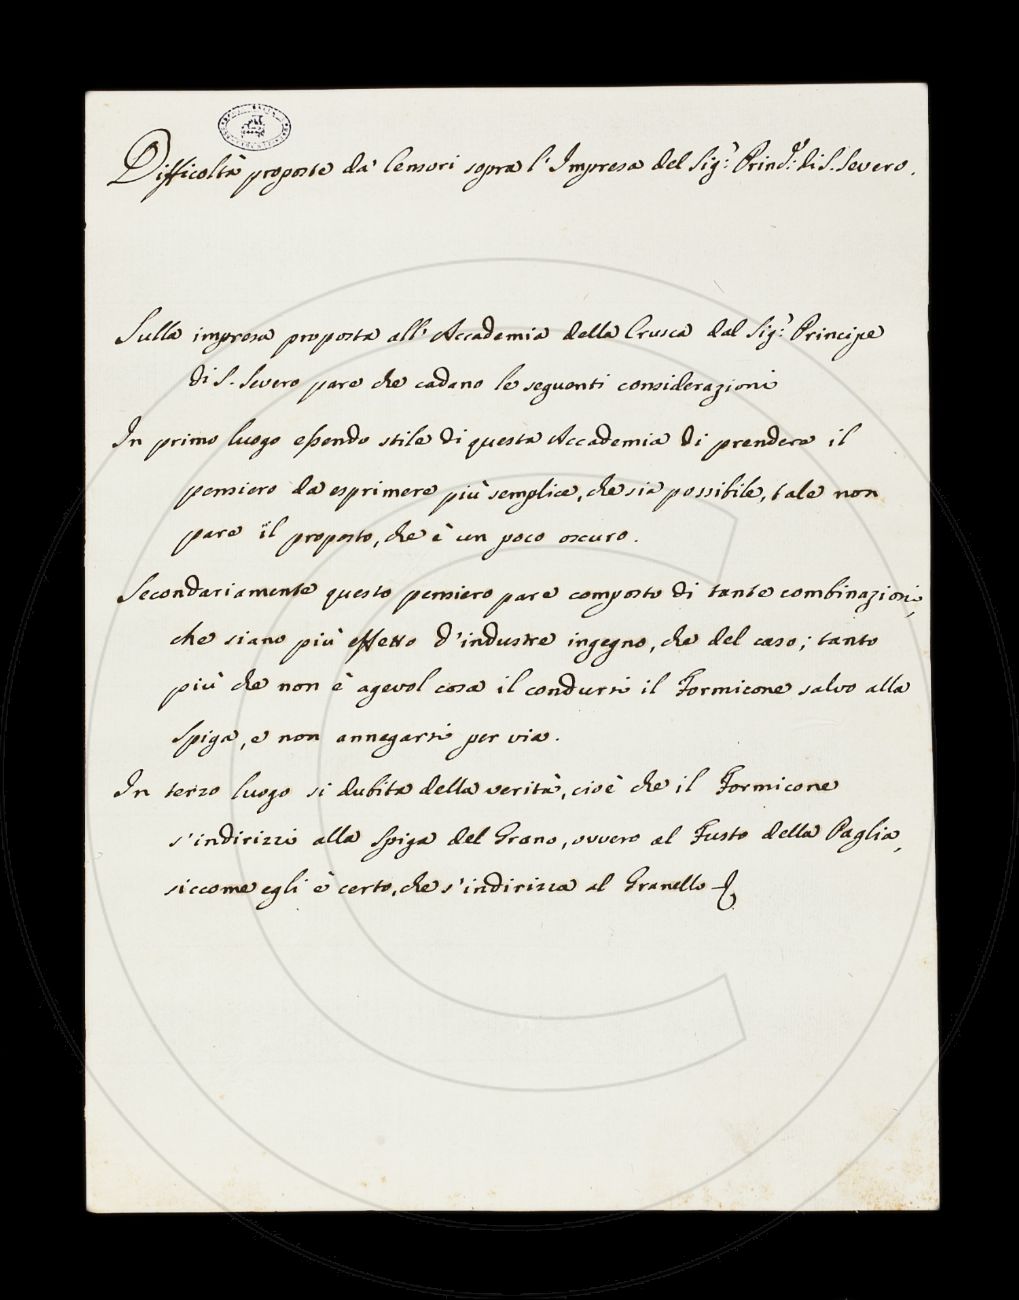 Difficoltà proposte da' Censori sopra l'Impresa del Sig.r Princ.e di S. Severo.
Sulla impresa proposta all'Accademia della Crusca dal Sig.r Principe
di S. Severo pare che cadano le seguenti considerazioni
In primo luogo essendo stile di questa Accademia di prendere il
pensiero da esprimere più semplice, che sia possibile, tale non
pare il proposto, che è un poco oscuro.
Secondariamente questo pensiero pare composto di tante combinazioni,
che siano più effetto d'industre ingegno, che del caso; tanto
più che non è agevol cosa il condursi il Formicone salvo alla
Spiga, e non annegarsi per via.
In terzo luogo si dubita della verità, cioè che il Formicone
s'indirizzi alla Spiga del Grano, ovvero al Fusto della Paglia,
siccome egli è certo, che s'indirizza al Granello